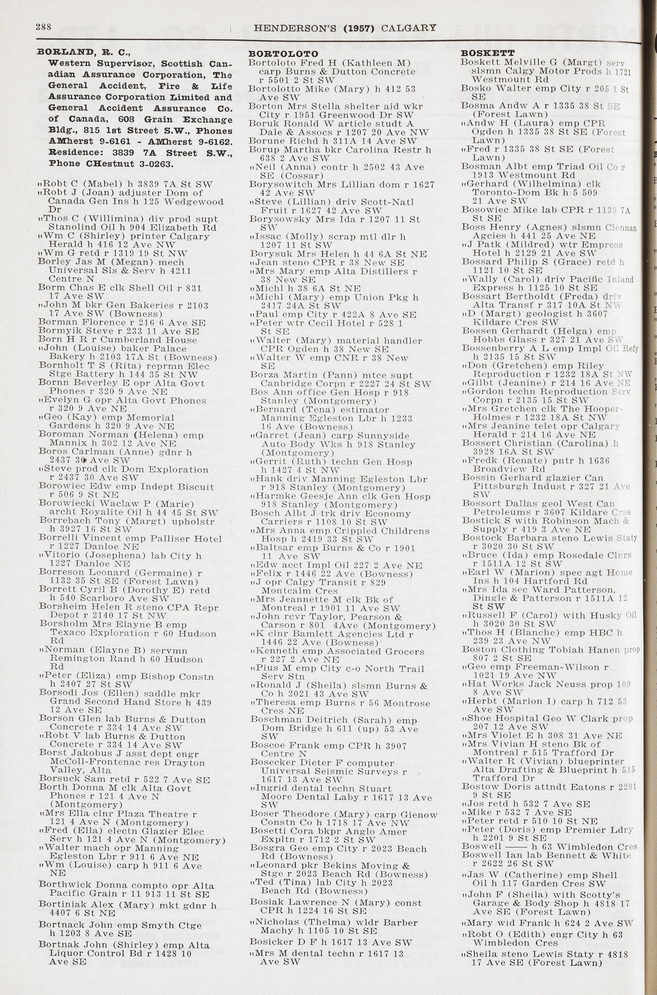 288
HENDERSON'S (1957) CALGARY
BORLAND, R. C.,
Western Supervisor, Scottish Can-
adian Assurance Corporation, The
General Accident, Fire & Life
Assurance Corporation Limited and
General Accident Assurance Co.
of Canada, 608 Grain Exchange
Bldg., 815 1st Street S.W., Phones
AMherst 9-6161 - AMherst 9-6162.
Residence: 3839 7A Street S.W.,
Phone CHestnut 3-0263.
„Robt C (Mabel) h 3839 7A St SW
„Robt J (Joan) adjuster Dom of
Canada Gen Ins h 125 Wedgewood
Dr
„Thos C (Willimina) div prod supt
Stanolind Oil h 904 Elizabeth Rd
„Wm C (Shirley) printer Calgary
Herald h 416 12 Ave NW
„Wm G retd r 1319 19 St NW
Borley Jas M (Megan) mech
Universal Sls & Serv h 4211
Centre N
Borm Chas E clk Shell Oil r 831
17 Ave SW
„John M bkr Gen Bakeries r 2103
17 Ave SW (Bowness)
Borman Florence r 216 6 Ave SE
Bormylk Steve r 233 11 Ave SE
Born H R r Cumberland House
„John (Louise) baker Palace
Bakery h 2103 17A St (Bowness)
Bornholt T S (Rita) reprmn Elec
Stge Battery h 144 35 St NW
Bornn Beverley E opr Alta Govt
Phones r 320 9 Ave NE
„Evelyn G opr Alta Govt Phones
r 320 9 Ave NE
„Geo (Kay) emp Memorial
Gardens h 320 9 Ave NE
Boroman Norman (Helena) emp
Mannix h 302 12 Ave NE
Boros Carlman (Anne) gdnr h
2437 30 Ave SW
„Steve prod clk Dom Exploration
r 2437 30 Ave SW
Borowiec Edw emp Indept Biscuit
r 506 9 St NE
Borowiecki Waclaw P (Marie)
archt Royalite Oil h 44 45 St SW
Borrebach Tony (Margt) upholstr
h 3927 16 St SW
Borrelli Vincent emp Palliser Hotel
r 1227 Danloe NE
„Vitorio (Josephena) lab City h
1227 Danloe NE
Borreson Leonard (Germaine) r
1132 35 St SE (Forest Lawn)
Borrett Cyril B (Dorothy E) retd
h 540 Scarboro Ave SW
Borsheim Helen R steno CPA Repr
Depot r 2140 17 St NW
Borsholm Mrs Elayne B emp
Texaco Exploration r 60 Hudson
Rd
„Norman (Elayne B) servmn
Remington Rand h 60 Hudson
Rd
„Peter (Eliza) emp Bishop Constn
h 2407 27 St SW
Borsodi Jos (Ellen) saddle mkr
Grand Second Hand Store h 439
12 Ave SE
Borson Glen lab Burns & Dutton
Concrete r 334 14 Ave SW
„Robt V lab Burns & Dutton
Concrete r 334 14 Ave SW
Borst Jakobus J asst dept engr
McColl-Frontenac res Drayton
Valley, Alta
Borsuck Sam retd r 522 7 Ave SE
Borth Donna M clk Alta Govt
Phones r 121 4 Ave N
(Montgomery)
„Mrs Ella clnr Plaza Theatre r
121 4 Ave N (Montgomery)
„Fred (Ella) electn Glazier Elec
Serv h 121 4 Ave N (Montgomery)
„Walter mach opr Manning
Egleston Lbr r 911 6 Ave NE
„Wm (Louise) carp h 911 6 Ave
NE
Borthwick Donna compto opr Alta
Pacific Grain r 11 913 11 St SE
Bortiniak Alex (Mary) mkt gdnr h
4407 6 St NE
Bortnack John emp Smyth Ctge
h 1203 8 Ave SE
Bortnak John (Shirley) emp Alta
Liquor Control Bd r 1428 10
Ave SE
BORTOLOTO
Bortoloto Fred H (Kathleen M)
carp Burns & Dutton Concrete
r 5501 2 St SW
Bortolotto Mike (Mary) h 412 53
Ave SW
Borton Mrs Stella shelter aid wkr
City r 1951 Greenwood Dr SW
Boruk Ronald W article studt A
Dale & Assocs r 1207 20 Ave NW
Borune Richd h 311A 14 Ave SW
Borup Martha bkr Carolina Restr h
638 2 Ave SW
„Neil (Anna) contr h 2502 43 Ave
SE (Cossar)
Borysowitch Mrs Lillian dom r 1627
42 Ave SW
„Steve (Lillian) driv Scott-Natl
Fruit r 1627 42 Ave SW
Borysowsky Mrs Ida r 1207 11 St
SW
„Issac (Molly) scrap mtl dlr h
1207 11 St SW
Borysuk Mrs Helen h 44 6A St NE
„Jean steno CPR r 38 New SE
„Mrs Mary emp Alta Distillers r
38 New SE
„Michl h 38 6A St NE
„Michl (Mary) emp Union Pkg h
2417 24A St SW
„Paul emp City r 422A 8 Ave SE
„Peter wtr Cecil Hotel r 528 1
St SE
„Walter (Mary) material handler
CPR Ogden h 38 New SE
„Walter W emp CNR r 38 New
SE
Borza Martin (Pann) mtce supt
Canbridge Corpn r 2227 24 St SW
Bos Ann office Gen Hosp r 918
Stanley (Montgomery)
„Bernard (Tena) estimator
Manning Egleston Lbr h 1233
16 Ave (Bowness)
„Garret (Jean) carp Sunnyside
Auto Body Wks h 918 Stanley
(Montgomery)
„Gerrit (Ruth) techn Gen Hosp
h 1427 4 St NW
„Hank driv Manning Egleston Lbr
r 918 Stanley (Montgomery)
„Harmke Geesje Ann clk Gen Hosp
918 Stanley (Montgomery)
Bosch Albt J trk driv Economy
Carriers r 1108 10 St SW
„Mrs Anna emp Crippled Childrens
Hosp h 2419 33 St SW
„Baltsar emp Burns & Co r 1901
11 Ave SW
„Edw acct Impl Oil 227 2 Ave NE
„Felix r 1446 22 Ave (Bowness)
„J opr Calgy Transit r 829
Montcalm Cres
„Mrs Jeannette M clk Bk of
Montreal r 1901 11 Ave SW
„John rcvr Taylor, Pearson &
Carson r 801 4Ave (Montgomery)
„K clnr Bamlett Agencies Ltd r
1446 22 Ave (Bowness)
„Kenneth emp Associated Grocers
r 227 2 Ave NE
„Pius M emp City c-o North Trail
Serv Stn
„Ronald J (Sheila) slsmn Burns &
Co h 2021 43 Ave SW
„Theresa emp Burns r 56 Montrose
Cres NE
Boschman Deitrich (Sarah) emp
Dom Bridge h 611 (up) 53 Ave
SW
Boscoe Frank emp CPR h 3907
Centre N
Bosecker Dieter F computer
Universal Seismic Surveys r
1617 13 Ave SW
„Ingrid dental techn Stuart
Moore Dental Laby r 1617 13 Ave
SW
Boser Theodore (Mary) carp Gienow
Constn Co h 1718 17 Ave NW
Bosetti Cora bkpr Anglo Amer
Expltn r 1712 2 St SW
Bosgra Geo emp City r 2023 Beach
Rd (Bowness)
„Leonard pkr Bekins Moving &
Stge r 2023 Beach Rd (Bowness)
„Ted (Tina) lab City h 2023
Beach Rd (Bowness)
Bosiak Lawrence N (Mary) const
CPR h 1224 16 St SE
„Nicholas (Thelma) wldr Barber
Machy h 1105 10 St SE
Bosicker D F h 1617 13 Ave SW
„Mrs M dental techn r 1617 13
Ave SW
BOSKETT
Boskett Melville G (Margt) serv
slsmn Calgy Motor Prods h 1721
Westmount Rd
Bosko Walter emp City r 205 1 St
SE
Bosma Andw A r 1335 38 St SE
(Forest Lawn)
„Andw H (Laura) emp CPR
Ogden h 1335 38 St SE (Forest
Lawn)
„Fred r 1335 38 St SE (Forest
Lawn)
Bosman Albt emp Triad Oil Co r
1913 Westmount Rd
„Gerhard (Wilhelmina) clk
Toronto-Dom Bk h 5 509
21 Ave SW
Bosowiec Mike lab CPR r 1135 7A
St SE
Boss Henry (Agnes) slsmn Clennan
Agcies h 441 25 Ave NE
„J Patk (Mildred) wtr Empress
Hotel h 2129 21 Ave SW
Bossard Philip S (Grace) retd h
1121 10 St SE
„Wally (Carol) driv Pacific Inland
Express h 1125 10 St SE
Bossart Bertholdt (Freda) driv
Alta Transf r 317 10A St NW
„D (Margt) geologist h 3607
Kildare Cres SW
Bossen Gerhardt (Helga) emp
Hobbs Glass r 327 21 Ave SW
Bossenberry A L emp Impl Oil Refy
h 2135 15 St SW
„Don (Gretchen) emp Riley
Reproduction r 1232 18A St NW
„Gilbt (Jeanine) r 214 16 Ave NE
„Gordon techn Reproduction Serv
Corpn r 2135 15 St SW
„Mrs Gretchen clk The Hooper-
Holmes r 1232 18A St NW
„Mrs Jeanine telet opr Calgary
Herald r 214 16 Ave NE
Bossert Christian (Carolina) h
3928 16A St SW
„Fredk (Renate) pntr h 1636
Broadview Rd
Bossin Gerhard glazier Can
Pittsburgh Indust r 327 21 Ave
SW
Bossort Dallas geol West Can
Petroleums r 3607 Kildare Cres
Bostick S with Robinson Mach &
Supply r 419 3 Ave NE
Bostock Barbara steno Lewis Staty
r 3020 30 St SW
„Bruce (Ida) emp Rosedale Clnrs
r 1511A 12 St SW
„Earl W (Marion) spec agt Home
Ins h 104 Hartford Rd
„Mrs Ida sec Ward Patterson,
Dingle & Patterson r 1511A 12
St SW
„Russell F (Carol) with Husky Oil
h 3020 30 St SW
„Thos H (Blanche) emp HBC h
239 23 Ave NW
Boston Clothing Tobiah Hanen prop
807 2 St SE
„Geo emp Freeman-Wilson r
1021 19 Ave NW
„Hat Works Jack Neuss prop 109
8 Ave SW
„Herbt (Marion I) carp h 712 53
Ave SW
„Shoe Hospital Geo W Clark prop
207 12 Ave SW
„Mrs Violet E h 308 31 Ave NE
„Mrs Vivian H steno Bk of
Montreal r 515 Trafford Dr
„Walter R (Vivian) blueprinter
Alta Drafting & Blueprint h 515
Trafford Dr
Bostow Doris attndt Eatons r 2201
9 St SE
„Jos retd h 532 7 Ave SE
„Mike r 532 7 Ave SE
„Peter retd r 510 10 St NE
„Peter (Doris) emp Premier Ldry
h 2201 9 St SE
Boswell —— h 63 Wimbledon Cres
Boswell Ian lab Bennett & White
r 2622 26 St SW
„Jas W (Catherine) emp Shell
Oil h 117 Garden Cres SW
„John F (Sheila) with Scotty's
Garage & Body Shop h 4818 17
Ave SE (Forest Lawn)
„Mary wid Frank h 624 2 Ave SW
„Robt O (Edith) engr City h 63
Wimbledon Cres
„Sheila steno Lewis Staty r 4818
17 Ave SE (Forest Lawn)